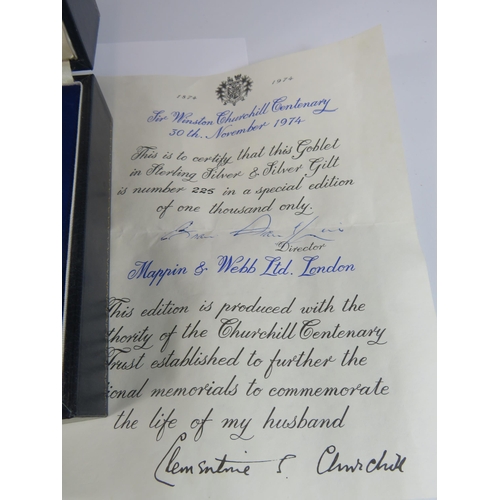 1874 1974
Sir Winston Churchill Centenary
30th. November 1974
This is to certify that this Goblet
in Sterling Silver & Silver Gilt
is number 225 in a special edition
of one thousand only.
Director
Mappin & Webb Ltd. London
This edition is produced with the
thority of the Churchill Centenary
Trust established to further the
ional memorials to commemorate
the life of my husband
Clementine S. Churchill